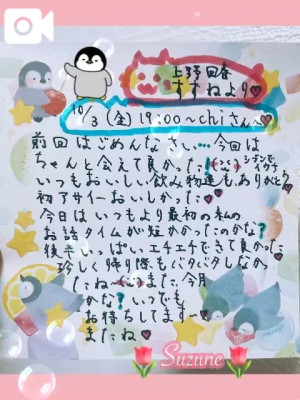 上野回春
すずねより♡
10/3(金)19:00~chiさんへ♡
前回はごめんなさい…今回は
ちゃんと会えて良かった!
いつもおいしい飲み物達もありがとう
初アサイーおいしかった♡
今日はいつもより最初の私の
お話タイムが短かかったのかな?
後半いっぱいエチエチできて良かった
珍しく帰り際もバタバタしなかっ
たね~また今月
かな?いつでも
お待ちしてます~♡
またね♡
Suzune